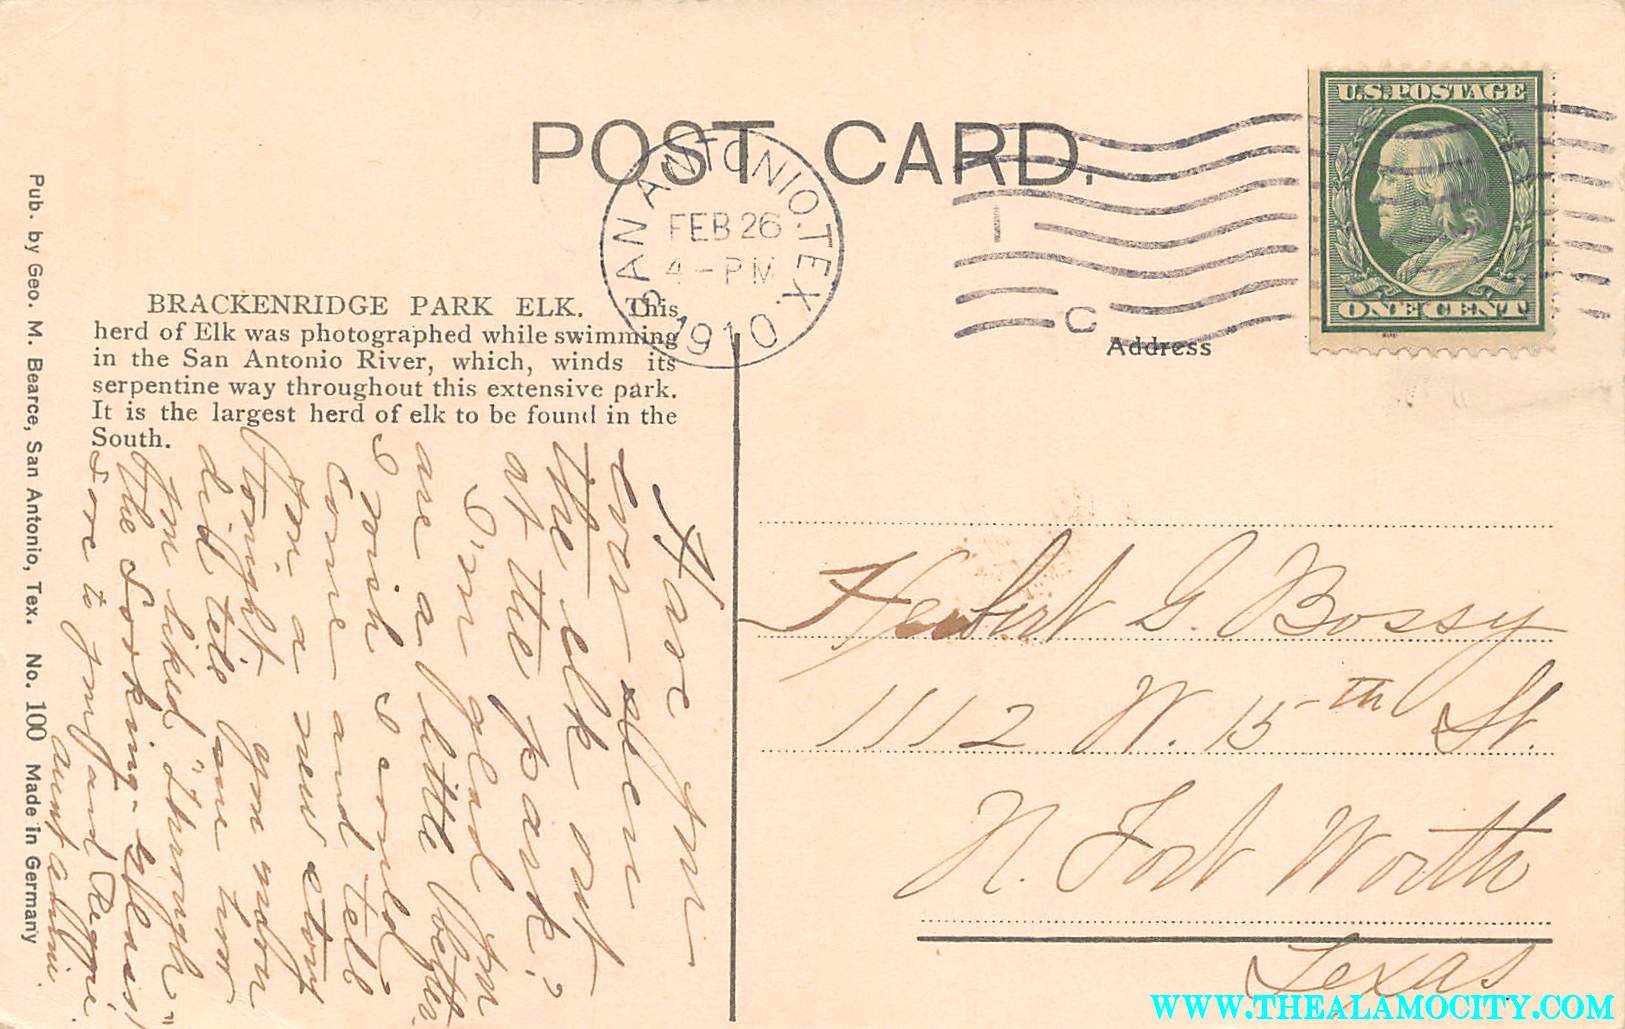 POST CARD.
U.S. POSTAGE
ONE CENT
SAN ANTONIO, TEX.
FEB 26
4-PM
1910
1
C
Address
BRACKENRIDGE PARK ELK. This
herd of Elk was photographed while swimming
in the San Antonio River, which, winds its
serpentine way throughout this extensive park.
It is the largest herd of elk to be found in the
South.
Pub. by Geo. M. Bearce, San Antonio, Tex. No. 100 Made in Germany
Have you
ever seen
the elk out
at the park?
I'm glad you
are a little better.
I wish I could
come and tell
you a new story
tonight. you
did tell me
you liked "Through
the Looking-Glass"
Love to you and
Aunt
Herbert G. Bossy
1112 W. 15th St.
N. Fort Worth
Texas
WWW.THEALAMOCITY.COM